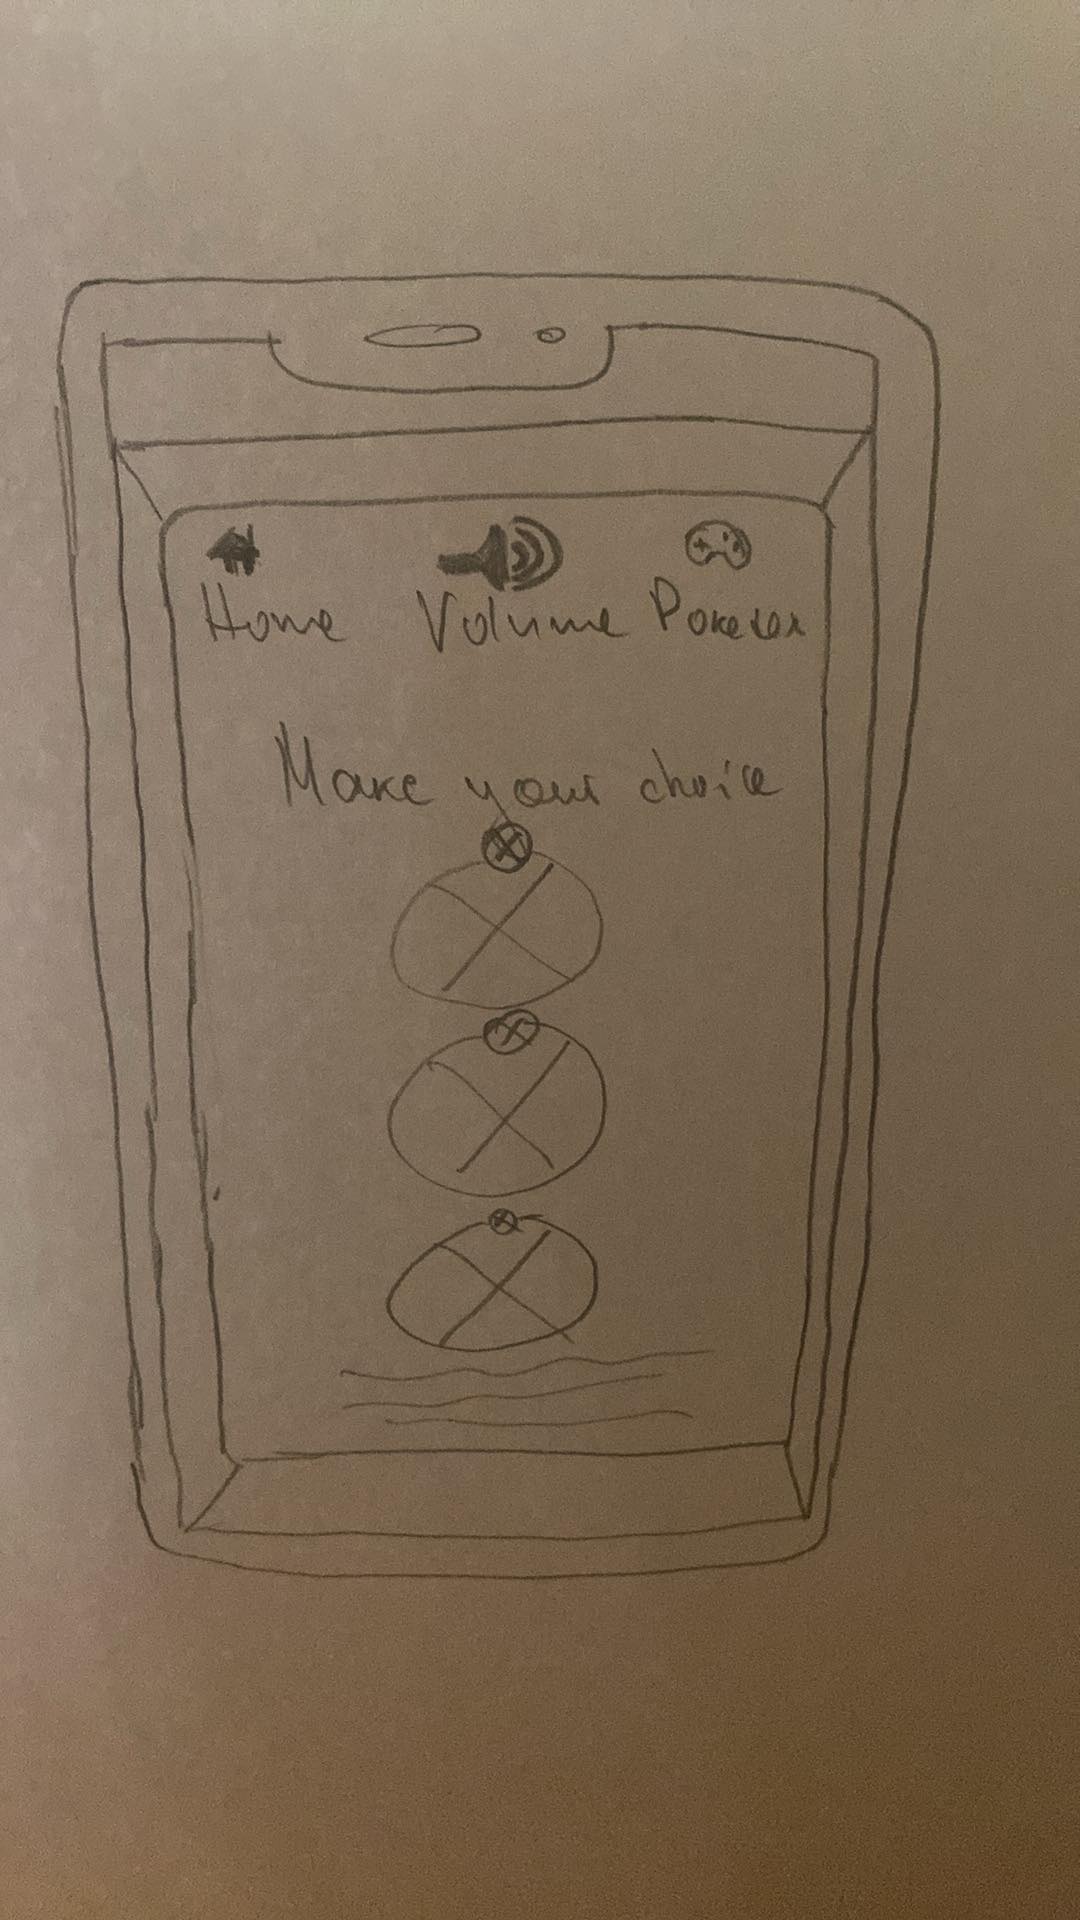 Home Volume Pokedex
Make your choice